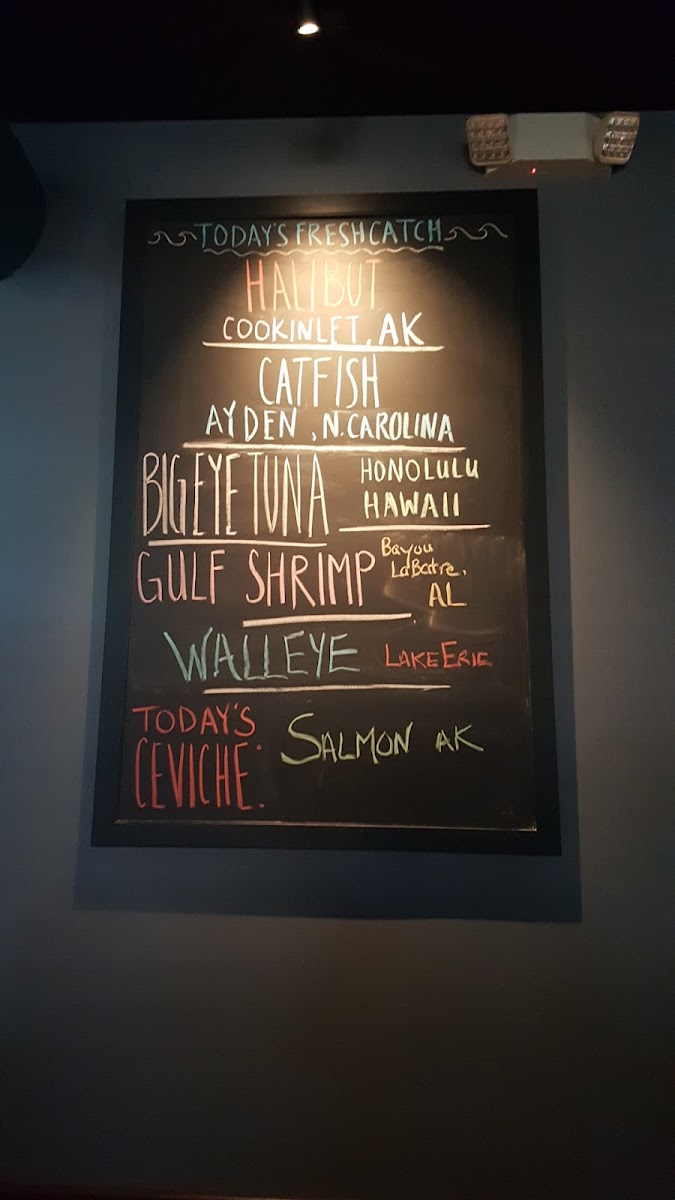 TODAY'S FRESH CATCH
HALIBUT
COOK INLET, AK
CATFISH
AYDEN, N. CAROLINA
BIG EYE TUNA
HONOLULU
HAWAII
GULF SHRIMP
Bayou
LaBatre,
AL
WALLEYE
LAKE ERIE
TODAY'S
CEVICHE:
SALMON AK